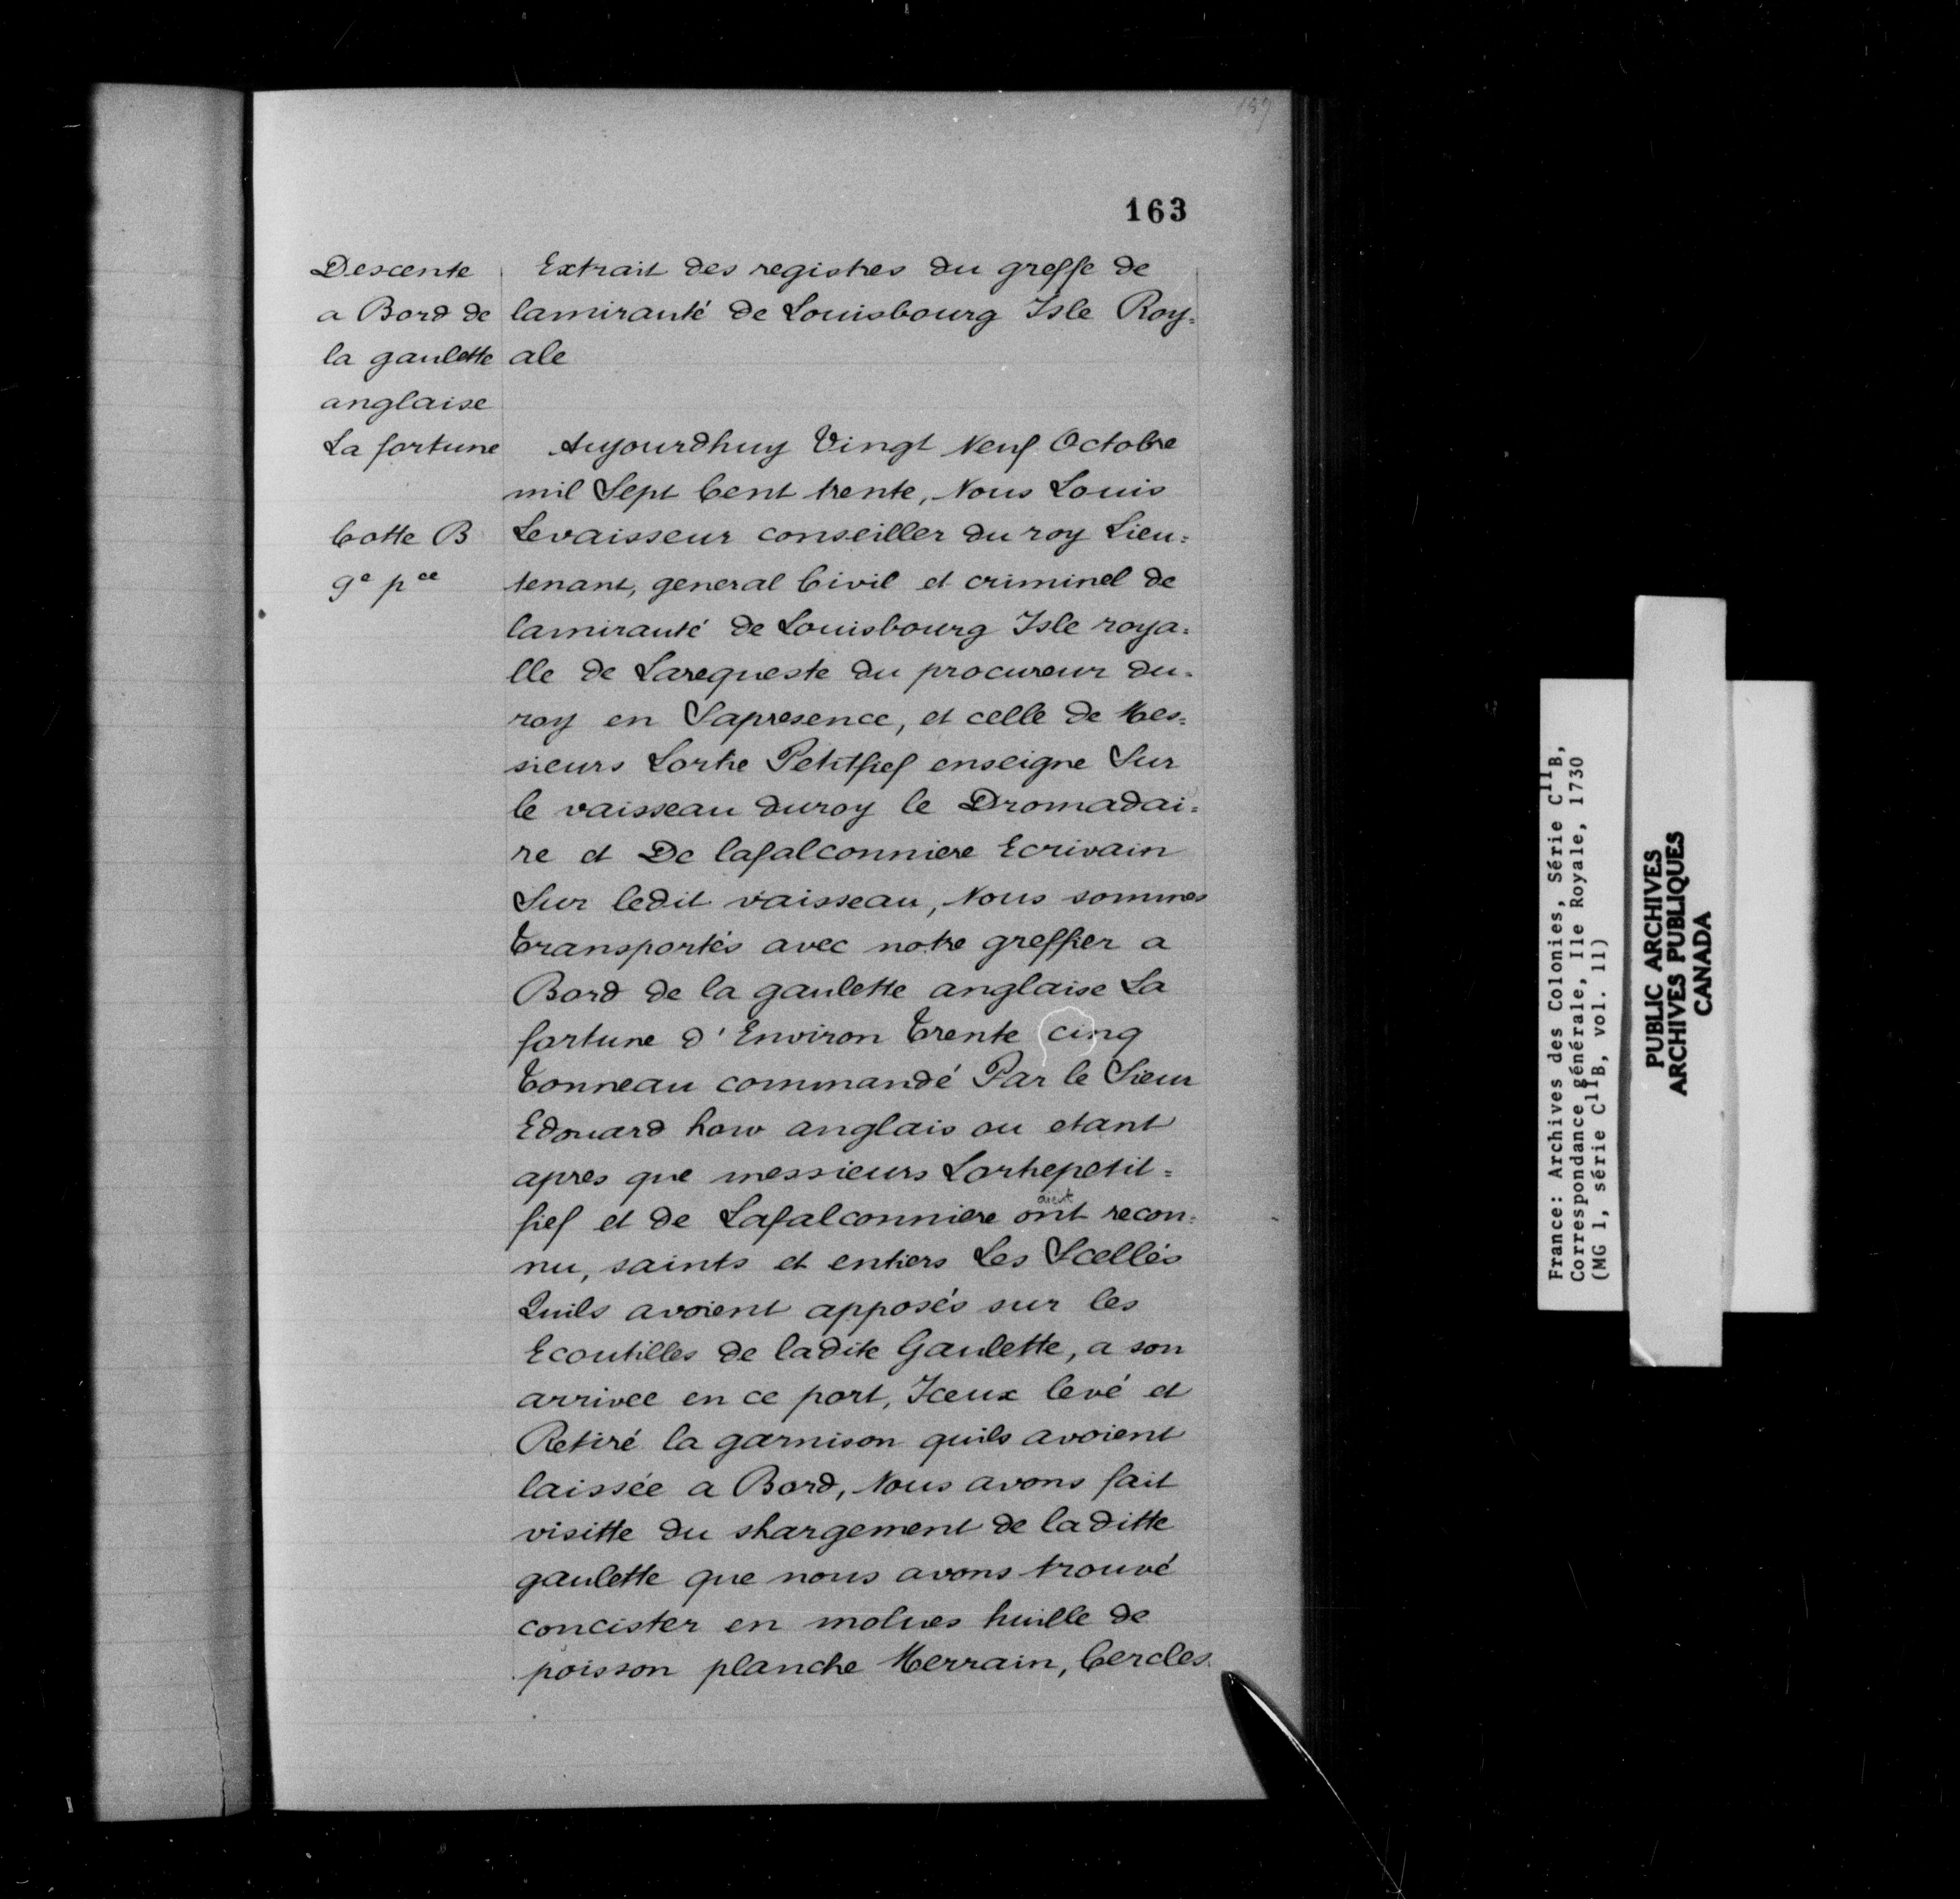 163
Descente
a Bord de
la gaulette
anglaise
La fortune
Cotte B
9e pce
Extrait des registres du greffe de
lamirauté de Louisbourg Isle Roy=
ale
Aujourdhuy Vingt Neuf Octobre
mil Sept Cent trente, Nous Louis
Levaisseur conseiller du roy Lieu=
tenant, general Civil et criminel de
lamirauté de Louisbourg Isle roya=
lle de Larequeste du procureur du=
roy en Sapresence, et celle de Mes=
sieurs Lortie Petitfief enseigne Sur
le vaisseau duroy le Dromadai=
re et De lafalconniere Ecrivain
Sur ledit vaisseau, Nous sommes
Transportés avec notre greffier a
Bord de la gaulette anglaise La
fortune d'Environ Trente cinq
Tonneau commandé Par le Sieur
Edouard how anglais ou etant
apres que messieurs Lortiepetit=
fief et de Lafalconniere ont recon=
aient
nu, saints et entiers Les Scellés
Quils avoient apposés sur les
Ecoutilles de ladite Gaulette, a son
arrivee en ce port, Iceux levé et
Retiré la garnison quils avoient
laissée a Bord, Nous avons fait
visitte du shargement de laditte
gaulette que nous avons trouvé
concister en molues huille de
poisson planche Merrain, Cercles
France: Archives des Colonies, Série C11B,
Correspondance générale, Ile Royale, 1730
(MG 1, série C11B, vol. 11)
PUBLIC ARCHIVES
ARCHIVES PUBLIQUES
CANADA